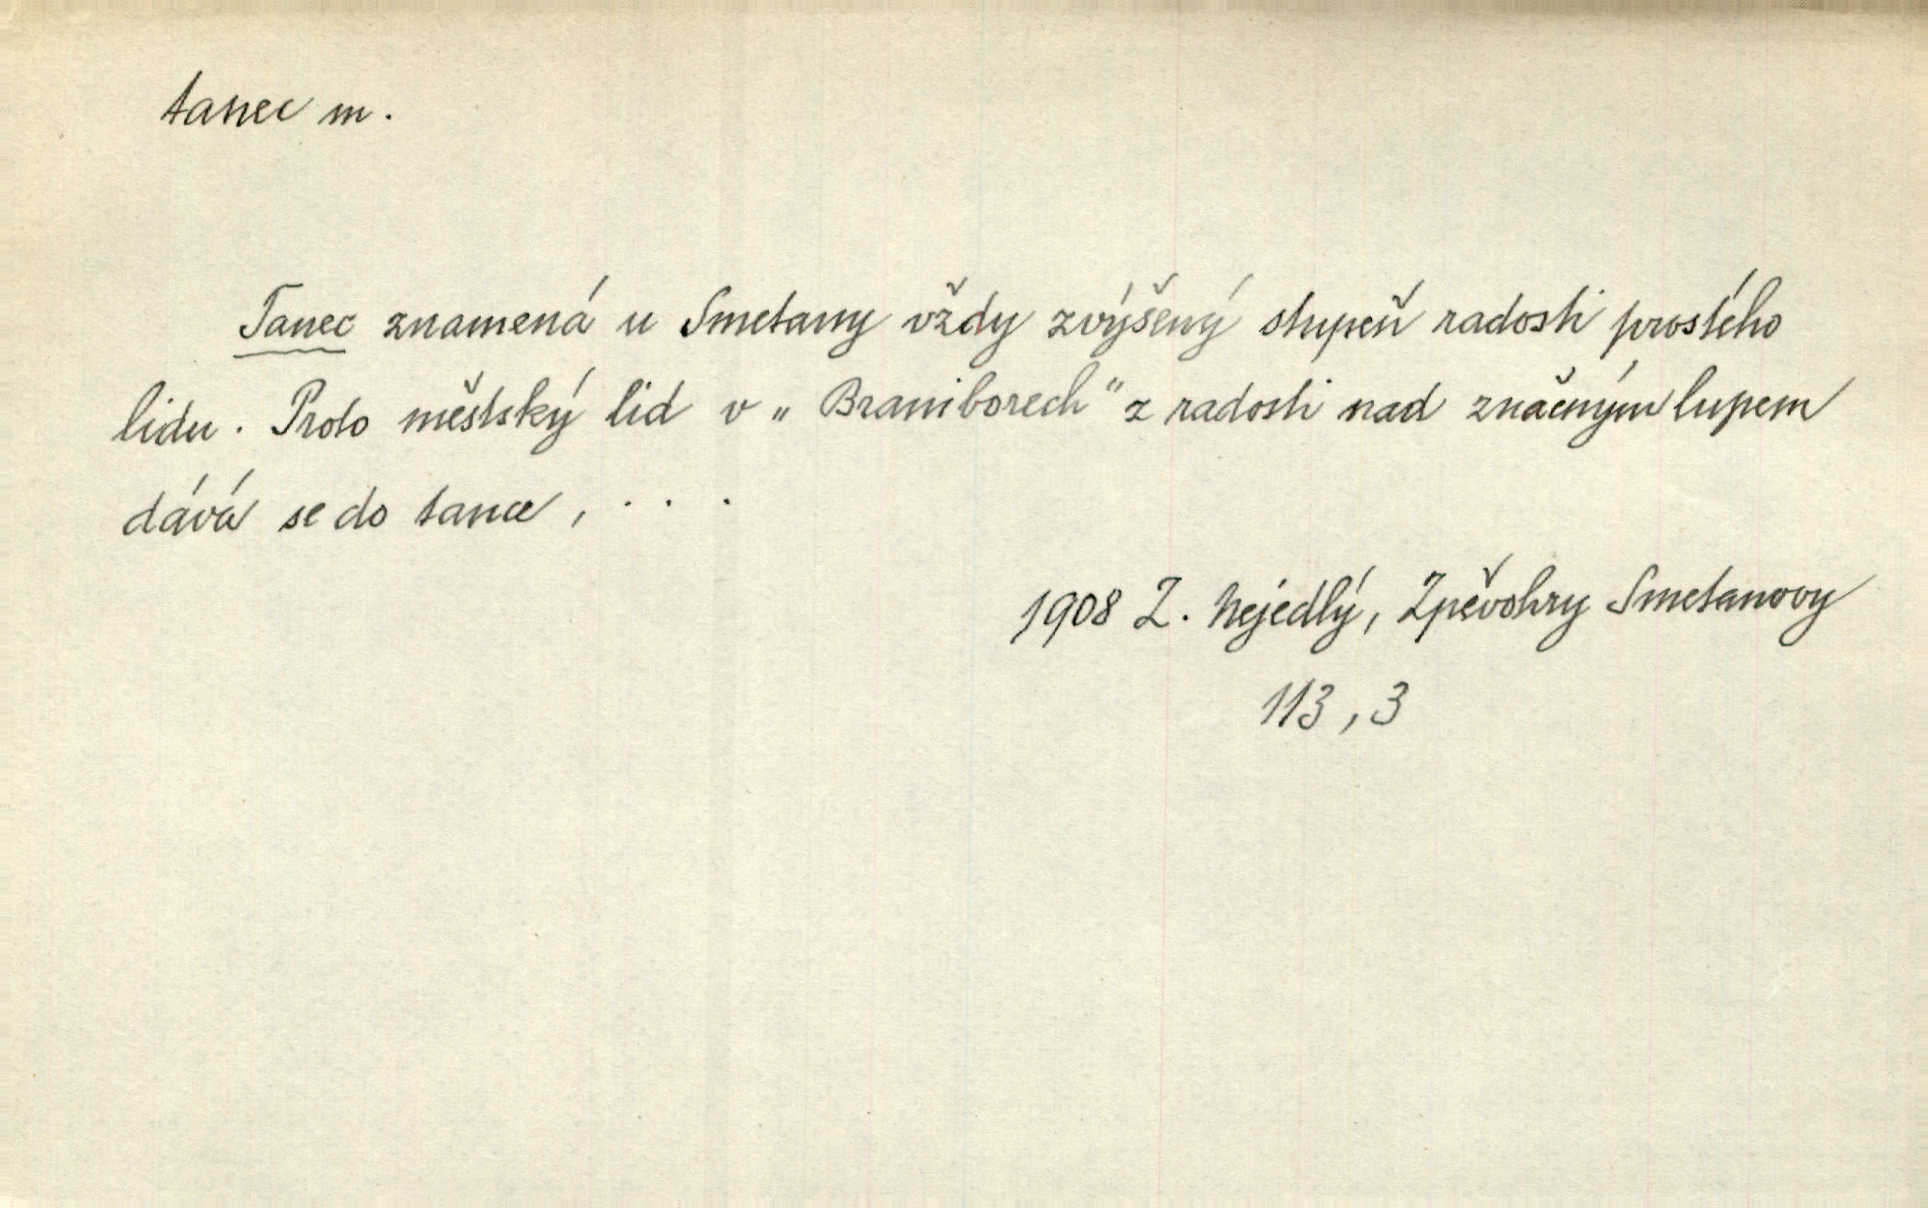 tanec m.
Tanec znamená u Smetany vždy zvýšený stupeň radosti prostého
lidu. Proto městský lid v „Braniborech" z radosti nad značným lupem
dává se do tance, . . .
1908 Z. Nejedlý, Zpěvohry Smetanovy
113, 3